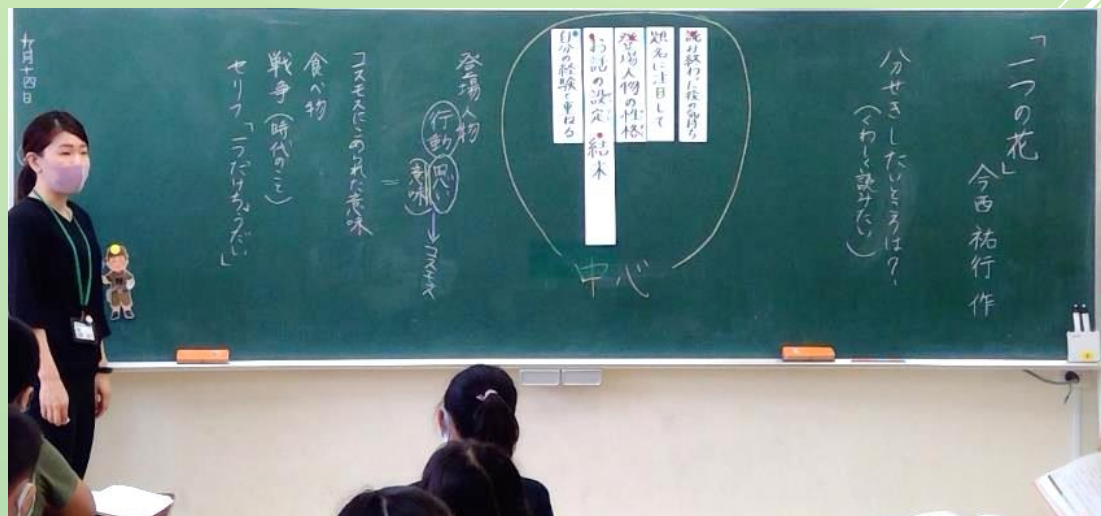 「一つの花」
今西祐行 作
分せきしたいところは?
(くわしく読みたい)
読み終わった後の気持ち
題名に注目して
登場人物の性格
お話の設定 結末
自分の経験と重ねる
中心
登場人物
行動 思い → コスモス
意味
=
コスモスにこめられた意味
食べ物
戦争(時代のこと)
セリフ「一つだけちょうだい」
九月十四日